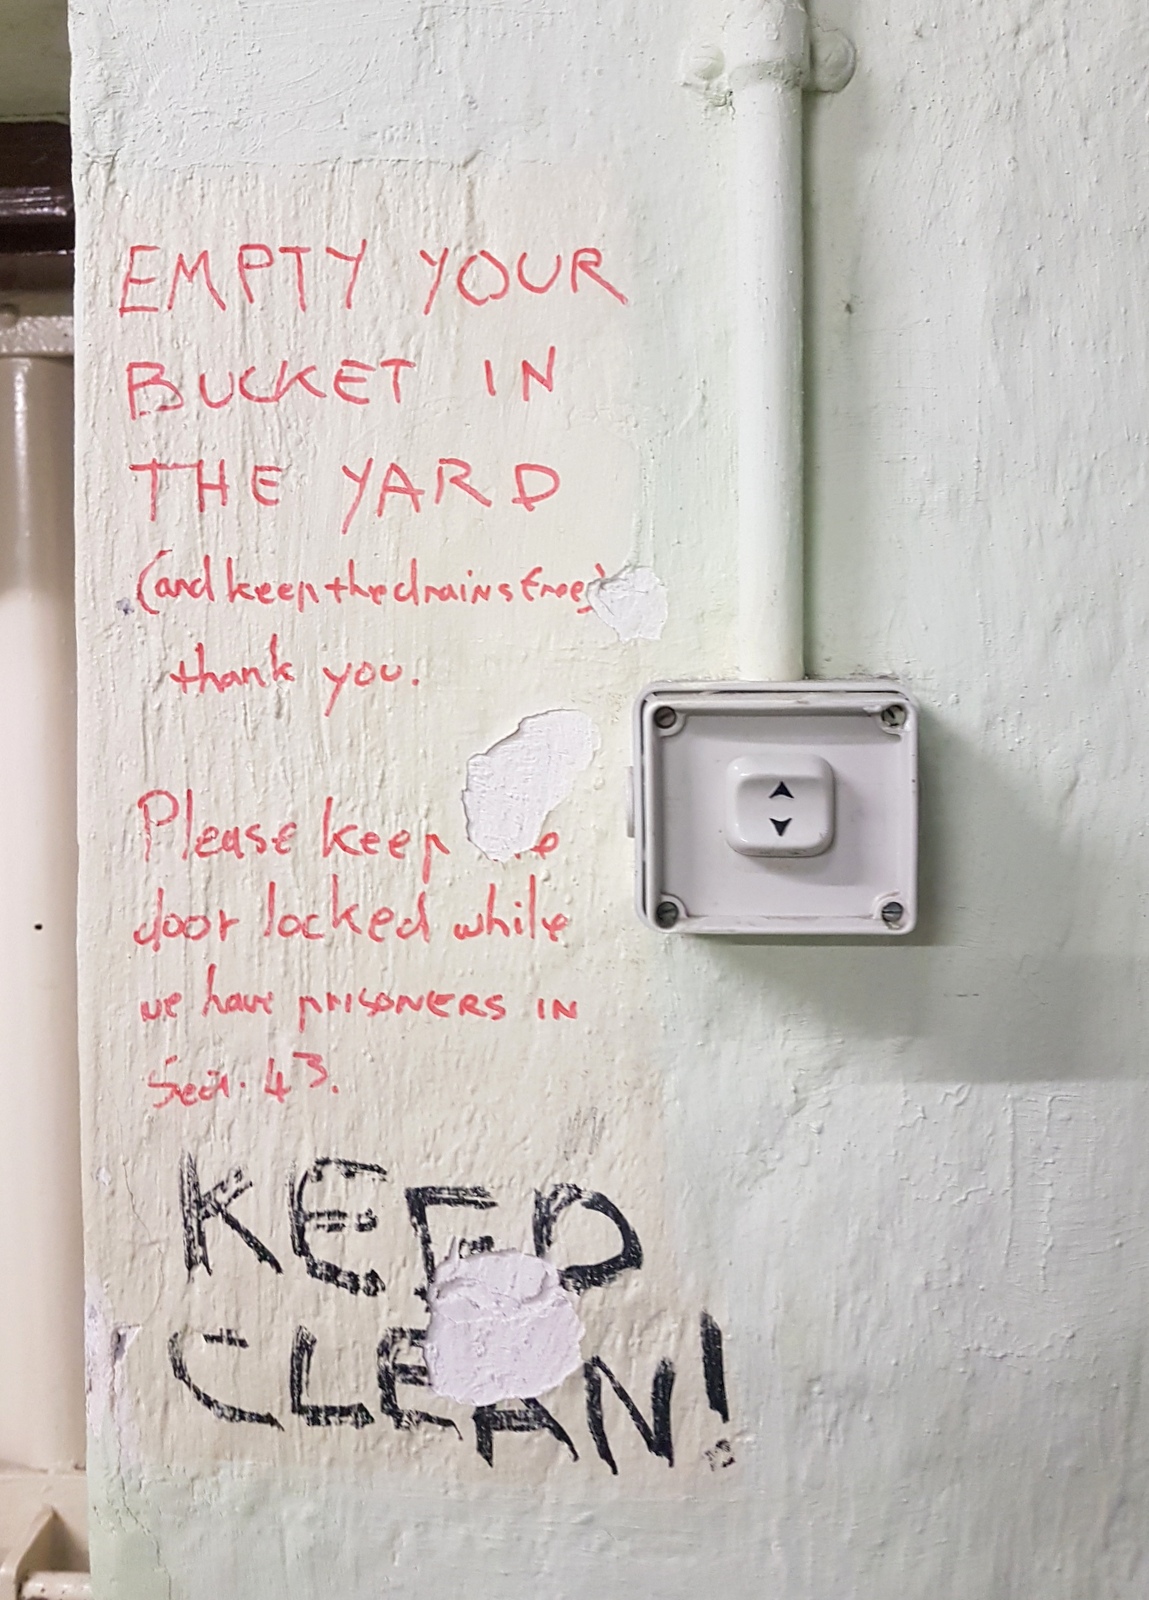 EMPTY YOUR
BUCKET IN
THE YARD
(and keep the drains free)
thank you.
Please keep
door locked while
we have prisoners in
43.
KEEP
CLEAN!